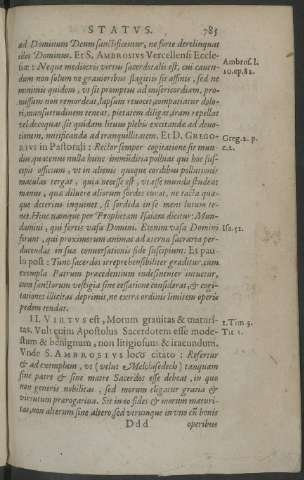 STATVS. 785
ad Dominum Deum sanctificentur, ne forte derelinquat
illos Dominus. Et S. AMBROSIVS Vercellensi Eccle-
siæ: Neque mediocris virtus sacerdotalis est, cui cauen-
dum non solum ne grauioribus flagitiis sit affinis, sed ne
minimis quidem, vt sit promptus ad misericordiam, pro-
missum non remordeat, lapsum reuocet, compatiatur dolo-
ri, mansuetudinem teneat, pietatem diligat, iram repellat
vel decoquat, sit quidam lituus plebis excitandæ ad deuo-
tionem, mitificandæ ad tranquillitatem. Et D. GREGO-
RIVS in Pastorali: Rector semper cogitatione sit mun-
dus, quatenus nulla hunc immūditia polluat qui hoc sus-
cepit officium, vt in alienis quoque cordibus pollutionis
maculas tergat, quia necesse est, vt esse munda studeat
manus, quæ diluere aliorum sordes curat, ne tacta quæ-
que deterius inquinet, si sordida insequens lutum te-
net. Hinc namque per Prophetam Isaiam dicitur: Mun-
damini, qui fertis vasa Domini. Etenim vasa Domini
ferunt, qui proximorum animas ad æterna sacraria per-
ducendas in suæ conuersationis fide suscipiunt: Et pau-
lo post: Tunc sacerdos irreprehensibiliter graditur, cum
exempla Patrum præcedentium indesinenter intuetur,
cum sanctorum vestigia sine cessatione considerat, & cogi-
tationes illicitas deprimit, ne extra ordinis limitem operis
pedem tendat.
II. VIRTVS est, Morum grauitas & maturi-
tas. Vult quim Apostolus Sacerdotem esse mode-
stum & benignum, non litigiosum & iracundum.
Vnde S. AMBROSIVS loco citato: Refertur
& ad exemplum, vt (velut Melchisedech) tanquam
sine patre & sine matre Sacerdos esse debeat, in quo
non generis nobilitas, sed morum eligatur gratia &
virtutum prærogatiua. Sit in eo fides & morum maturi-
tas, non alterum sine altero, sed vtrumque in vno cū bonis
Ddd operibus
Ambros. l.
10. ep. 82.
Greg. 2. p.
c. 2.
Isa. 52.
1. Tim 3.
Tit 1.